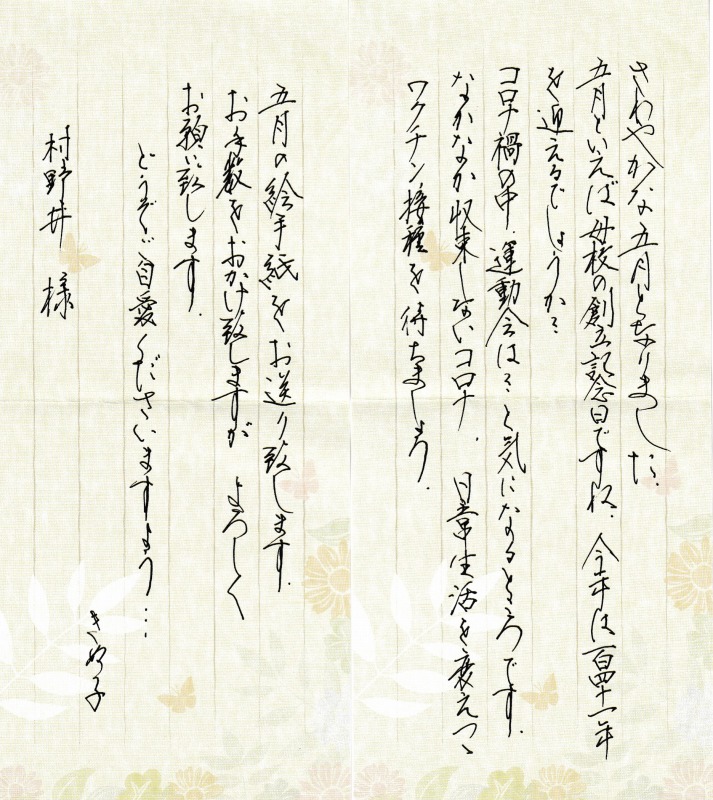 さわやかな五月となりました。
五月といえば母校の創立記念日ですね。今年は百四十一年
を迎えるでしょうか…
コロナ禍の中、運動会は…と気になるところです。
なかなか収束しないコロナ、日常生活を変えつつ
ワクチン接種を待ちましょう。
五月の絵手紙をお送り致します。
お手数をおかけ致しますが よろしく
お願い致します。
どうぞご自愛くださいますよう…
きぬ子
村野井 様